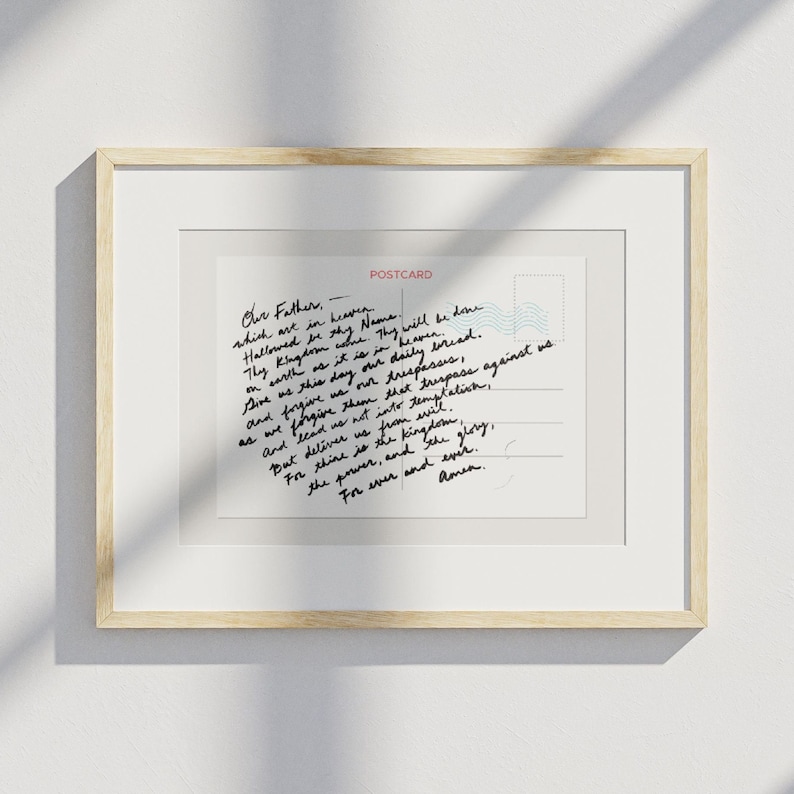 POSTCARD
Our Father, —
which art in heaven.
Hallowed be thy Name.
Thy Kingdom come. Thy will be done
on earth as it is in heaven.
Give us this day our daily bread.
and forgive us our trespasses,
as we forgive them that trespass against us
and lead us not into temptation,
But deliver us from evil.
For thine is the kingdom,
the power, and the glory,
For ever and ever.
Amen.